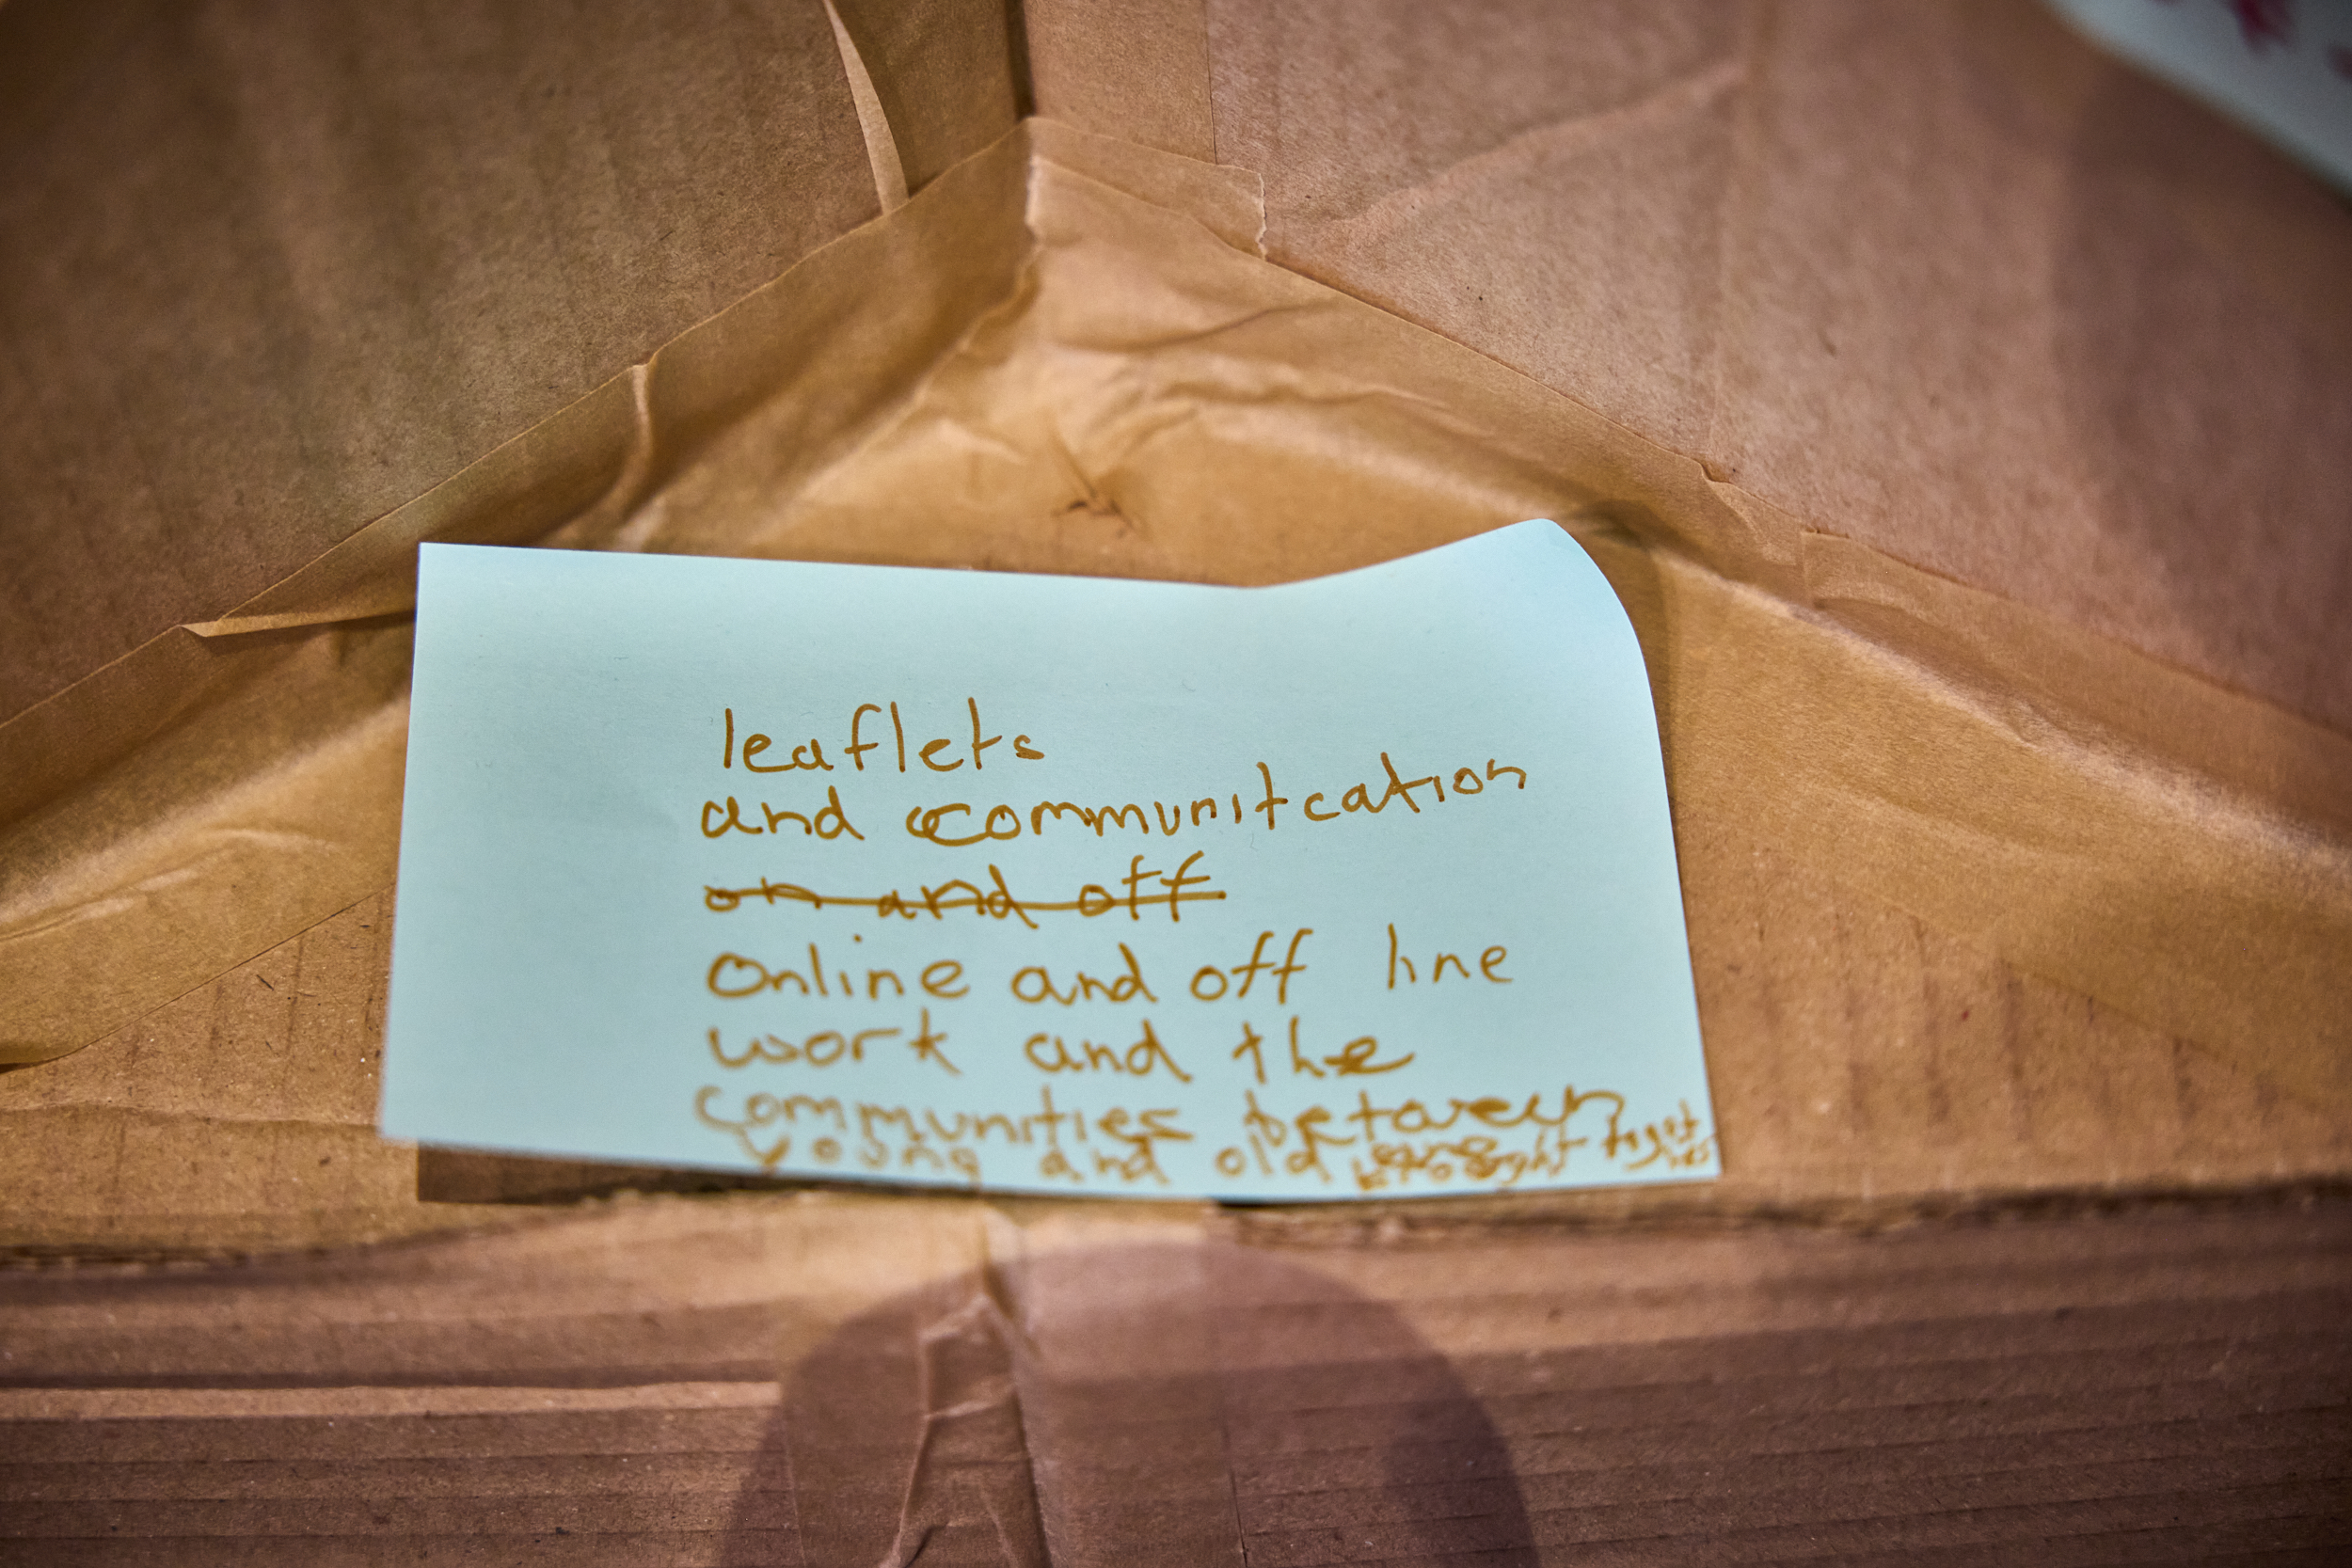 leaflets
and communitcation
on and off
online and off line
work and the
communities between
young and old